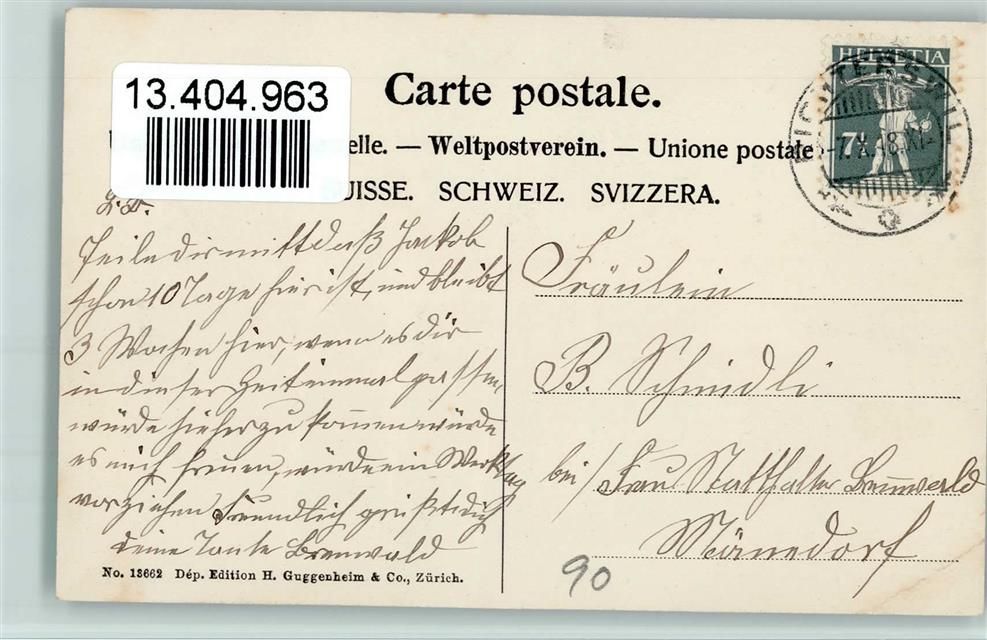 13.404.963
Carte postale.
elle. — Weltpostverein. — Unione postale
UISSE. SCHWEIZ. SVIZZERA.
HELVETIA
7½
Teile dir mitt daß Jackob
schon 10 Tage hier ist, und bleibt
3 Wochen hier, wenn es dir
in dieser Zeit einmal passen
würde hieher zu kommen würde
es mich freuen, würde ein Werktag
vorziehen Freundlich grüßt dich
deine Tante Brennwald
Fräulein
B. Schmidli
bei / Frau Statthalter Brennwald
Mänedorf
90
No. 13662 Dép. Edition H. Guggenheim & Co., Zürich.